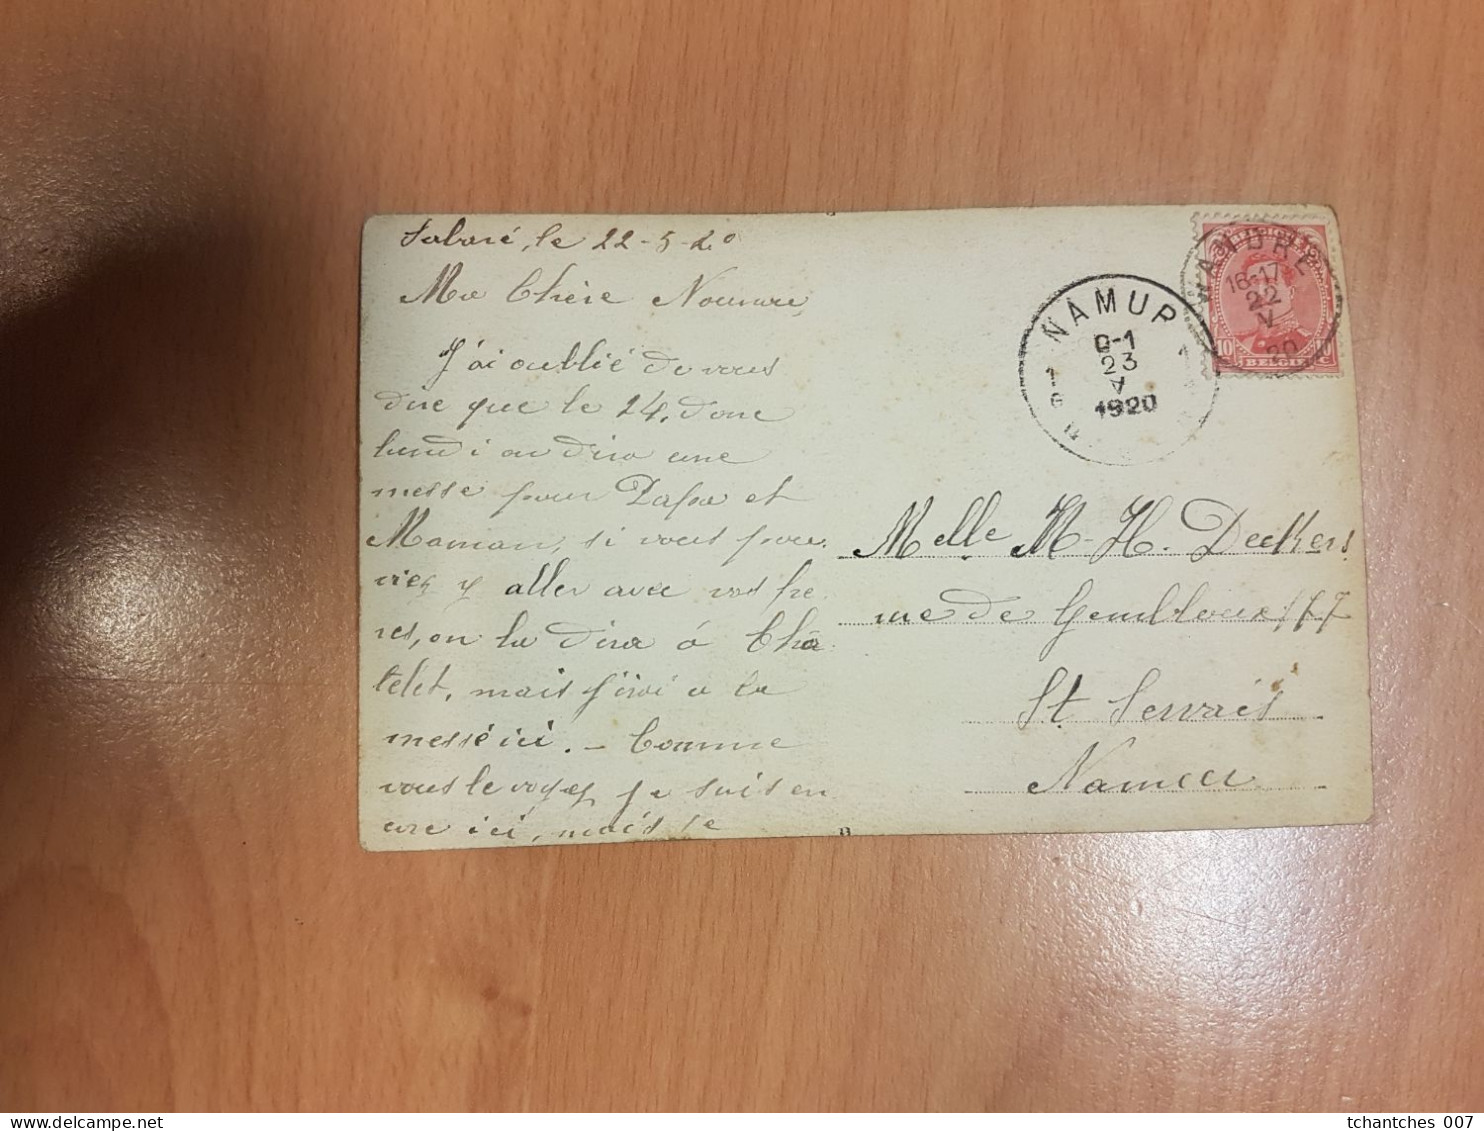 le 22-5-20
Ma Chère
J'ai oublié de vous
dire que le 24, donc
lundi on dira une
messe pour Papa et
Maman, si vous pou
viez y aller avec vos frè
res, on la dira à Châ
telet, mais j'irai à la
messe ici. - Comme
vous le voyez je suis en
core ici, mais le
WANDRE
16-17
22
V
20
10
BELGIE
NAMUR
23
V
1920
Melle M-H. Deckers
rue de Gembloux 177
St Servais
Namur
8
8
tchantches 007